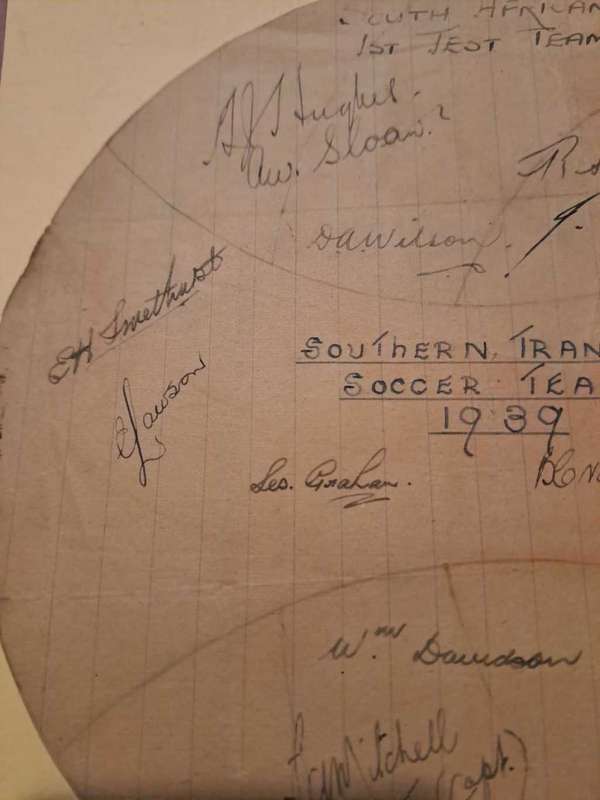 SOUTH AFRICAN
1ST TEST TEAM
Hughes.
Aw. Sloan.
D.A. Wilson.
EH Smethurst
SOUTHERN TRAN
SOCCER TEA
1939
Lawson
Les. Graham.
Wm. Davidson
Mitchell
(Capt.)